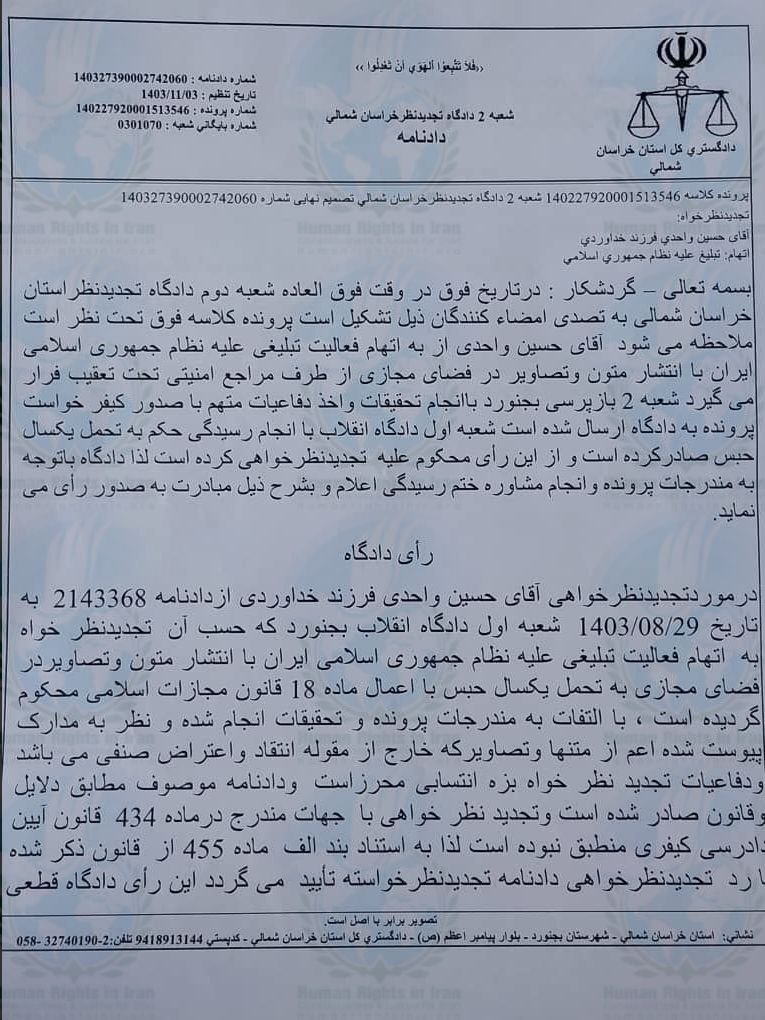 ‹‹فَلاَ تَتَّبِعُوا اَلْهَوَي أَنْ تَعْدِلُوا ››
شعبه 2 دادگاه تجدیدنظرخراسان شمالي
دادنامه
دادگستري کل استان خراسان
شمالي
شماره دادنامه : 140327390002742060
تاریخ تنظیم : 1403/11/03
شماره پرونده : 140227920001513546
شماره بایگاني شعبه : 0301070
پرونده کلاسه 140227920001513546 شعبه 2 دادگاه تجدیدنظرخراسان شمالي تصمیم نهایی شماره 140327390002742060
تجدیدنظرخواه:
آقای حسین واحدي فرزند خداوردي
اتهام: تبلیغ علیه نظام جمهوري اسلامي
بسمه تعالی – گردشکار : درتاریخ فوق در وقت فوق العاده شعبه دوم دادگاه تجدیدنظراستان
خراسان شمالی به تصدی امضاء کنندگان ذیل تشکیل است پرونده کلاسه فوق تحت نظر است
ملاحظه می شود آقای حسین واحدی از به اتهام فعالیت تبلیغی علیه نظام جمهوری اسلامی
ایران با انتشار متون وتصاویر در فضای مجازی از طرف مراجع امنیتی تحت تعقیب قرار
می گیرد شعبه 2 بازپرسی بجنورد باانجام تحقیقات واخذ دفاعیات متهم با صدور کیفر خواست
پرونده به دادگاه ارسال شده است شعبه اول دادگاه انقلاب با انجام رسیدگی حکم به تحمل یکسال
حبس صادرکرده است و از این رأی محکوم علیه تجدیدنظرخواهی کرده است لذا دادگاه باتوجه
به مندرجات پرونده وانجام مشاوره ختم رسیدگی اعلام و بشرح ذیل مبادرت به صدور رأی می
نماید.
رأی دادگاه
درموردتجدیدنظرخواهی آقای حسین واحدی فرزند خداوردی ازدادنامه 2143368 به
تاریخ 1403/08/29 شعبه اول دادگاه انقلاب بجنورد که حسب آن تجدیدنظر خواه
به اتهام فعالیت تبلیغی علیه نظام جمهوری اسلامی ایران با انتشار متون وتصاویردر
فضای مجازی به تحمل یکسال حبس با اعمال ماده 18 قانون مجازات اسلامی محکوم
گردیده است ، با التفات به مندرجات پرونده و تحقیقات انجام شده و نظر به مدارک
پیوست شده اعم از متنها وتصاویرکه خارج از مقوله انتقاد واعتراض صنفی می باشد
ودفاعیات تجدید نظر خواه بزه انتسابی محرزاست ودادنامه موصوف مطابق دلایل
وقانون صادر شده است وتجدید نظر خواهی با جهات مندرج درماده 434 قانون آیین
دادرسی کیفری منطبق نبوده است لذا به استناد بند الف ماده 455 از قانون ذکر شده
با رد تجدیدنظرخواهی دادنامه تجدیدنظرخواسته تأیید می گردد این رأی دادگاه قطعی
تصویر برابر با اصل است.
نشاني: استان خراسان شمالي - شهرستان بجنورد - بلوار پیامبر اعظم (ص) - دادگستري کل استان خراسان شمالي - کدپستي 9418913144 تلفن:2-32740190 -058
Human Rights in Iran